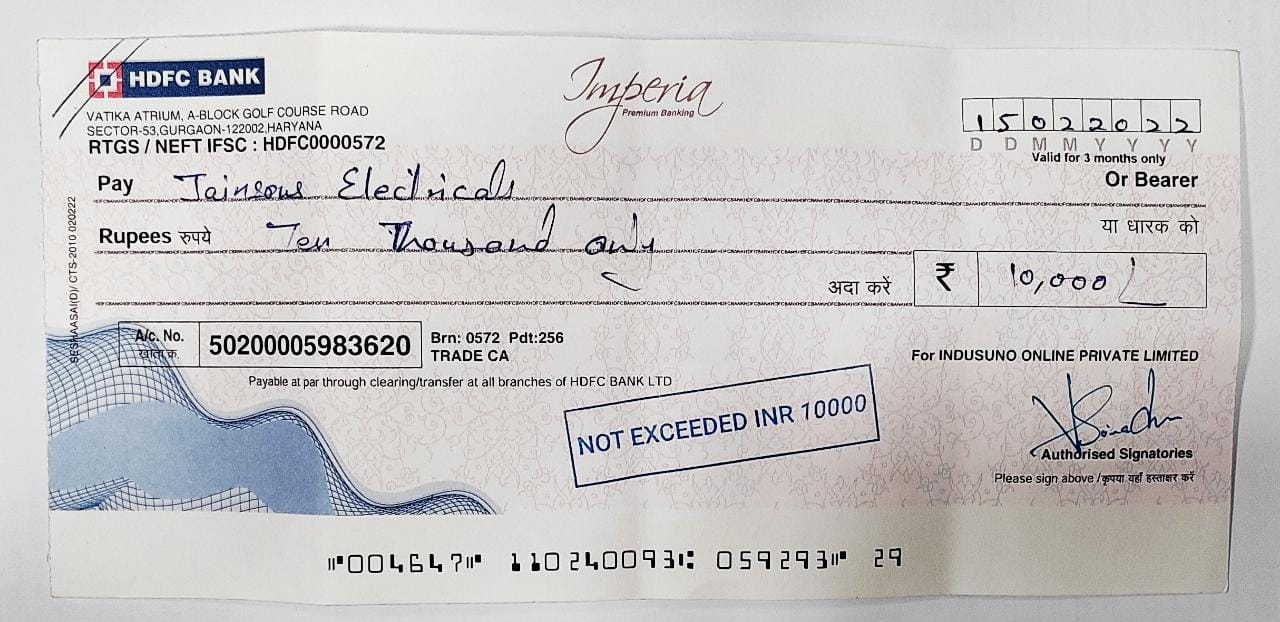 HDFC BANK
Imperia
Premium Banking
VATIKA ATRIUM, A-BLOCK GOLF COURSE ROAD
SECTOR-53,GURGAON-122002,HARYANA
RTGS / NEFT IFSC : HDFC0000572
15022022
D D M M Y Y Y Y
Valid for 3 months only
Pay Jainsons Electricals
Or Bearer
Rupees रुपये Ten Thousand only
या धारक को
अदा करें ₹ 10,000/-
SESHAASAI(D)/ CTS-2010 020222
A/c. No.
खाता क्र.
50200005983620
Brn: 0572 Pdt:256
TRADE CA
For INDUSUNO ONLINE PRIVATE LIMITED
Payable at par through clearing/transfer at all branches of HDFC BANK LTD
NOT EXCEEDED INR 10000
Authorised Signatories
Please sign above /कृपया यहाँ हस्ताक्षर करें
⑈004647⑈ 110240093⑆ 059293⑈ 29